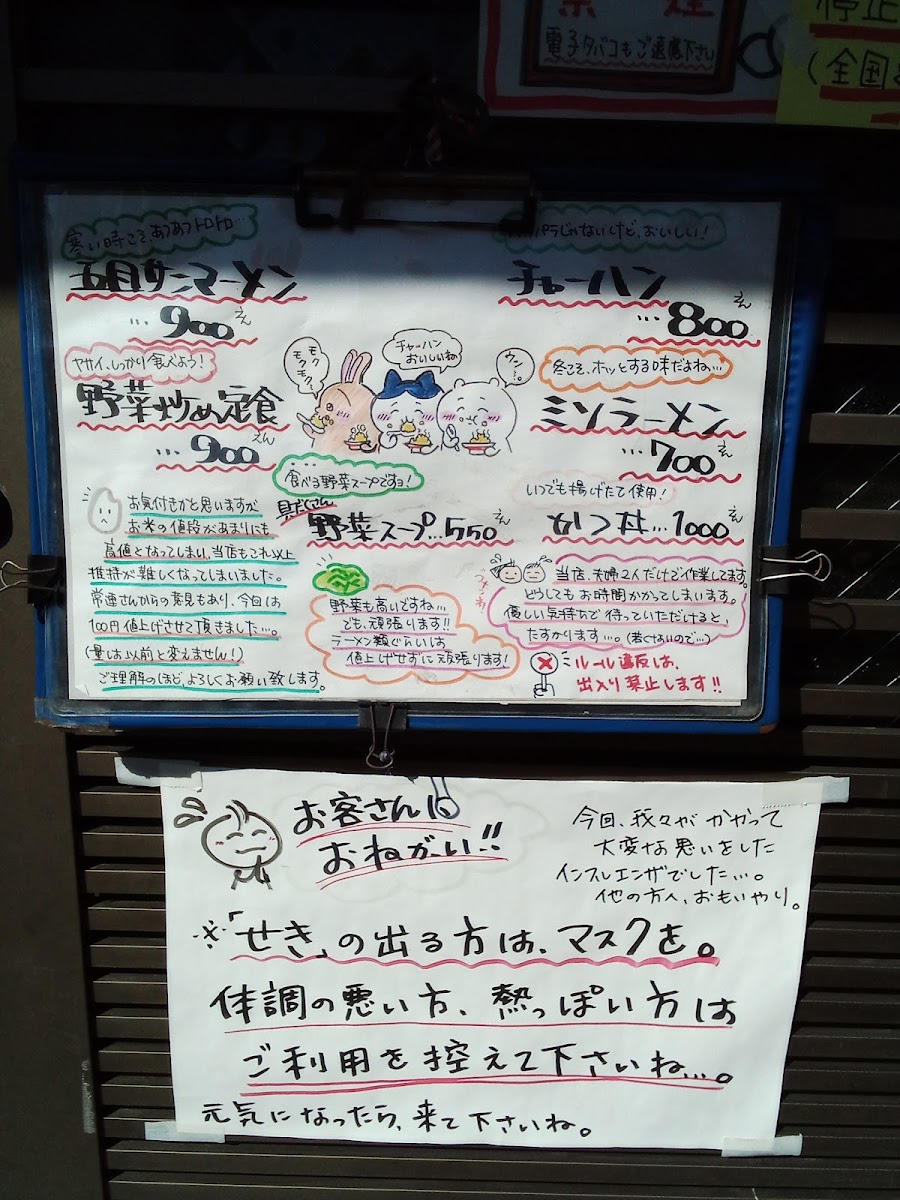 禁煙
電子タバコもご遠慮下さい
停止
(全国
寒い時こそ、あつあつトロトロ…
五目サンマーメン
…900えん
ヤサイ、しっかり食べよう!
野菜炒め定食
…900えん
モグモグモグ
チャーハンおいしいね
ウン…。
パラじゃないけど、おいしい!
チャーハン
…800えん
冬こそ、ホッとする味だよね…
ミソラーメン
…700えん
食べる野菜スープですョ!
具だくさん
野菜スープ…550えん
いつでも揚げたて使用!
かつ丼…1000えん
お気付きかと思いますが
お米の値段があまりにも
高値となってしまい、当店もこれ以上
維持が難しくなってしまいました。
常連さんからの意見もあり、今回は
100円値上げさせて頂きました…。
(量は以前と変えません!)
ご理解のほど、よろしくお願い致します。
野菜も高いですね…
でも、頑張ります!!
ラーメン類ぐらいは
値上げせずに頑張ります!
当店、夫婦2人だけで作業してます。
どうしてもお時間かかってしまいます。
優しい気持ちで待っていただけると、
たすかります…。(若くないので…)
ルール違反は、
出入り禁止します!!
お客さんに
おねがい!!
今回、我々がかかって
大変な思いをした
インフルエンザでした…。
他の方へ、おもいやり。
※「せき」の出る方は、マスクを。
体調の悪い方、熱っぽい方は
ご利用を控えて下さいね…。
元気になったら、来て下さいね。